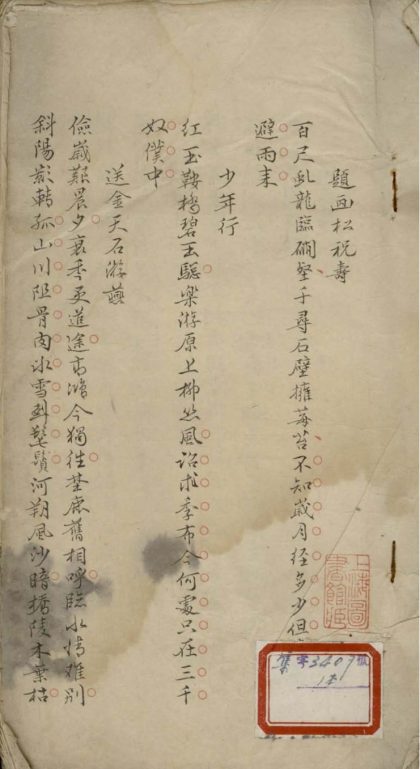 題画松祝壽
百尺虬龍臨磵壑千尋石壁擁莓苔不知歲月经多少但
避雨来
少年行
红玉鞍橋碧玉驄樂游原上柳丝風诏求季布今何處只在三千
奴僕中
送金天石游燕
儉歲艱晨夕衰年更道途高鴻今獨往塟鹿舊相呼臨水情难别
斜陽影轉孤山川阻骨肉冰雪到髭鬚河朔風沙暗楊陵木葉枯
上海圖
書館藏
集
字3407號
1本